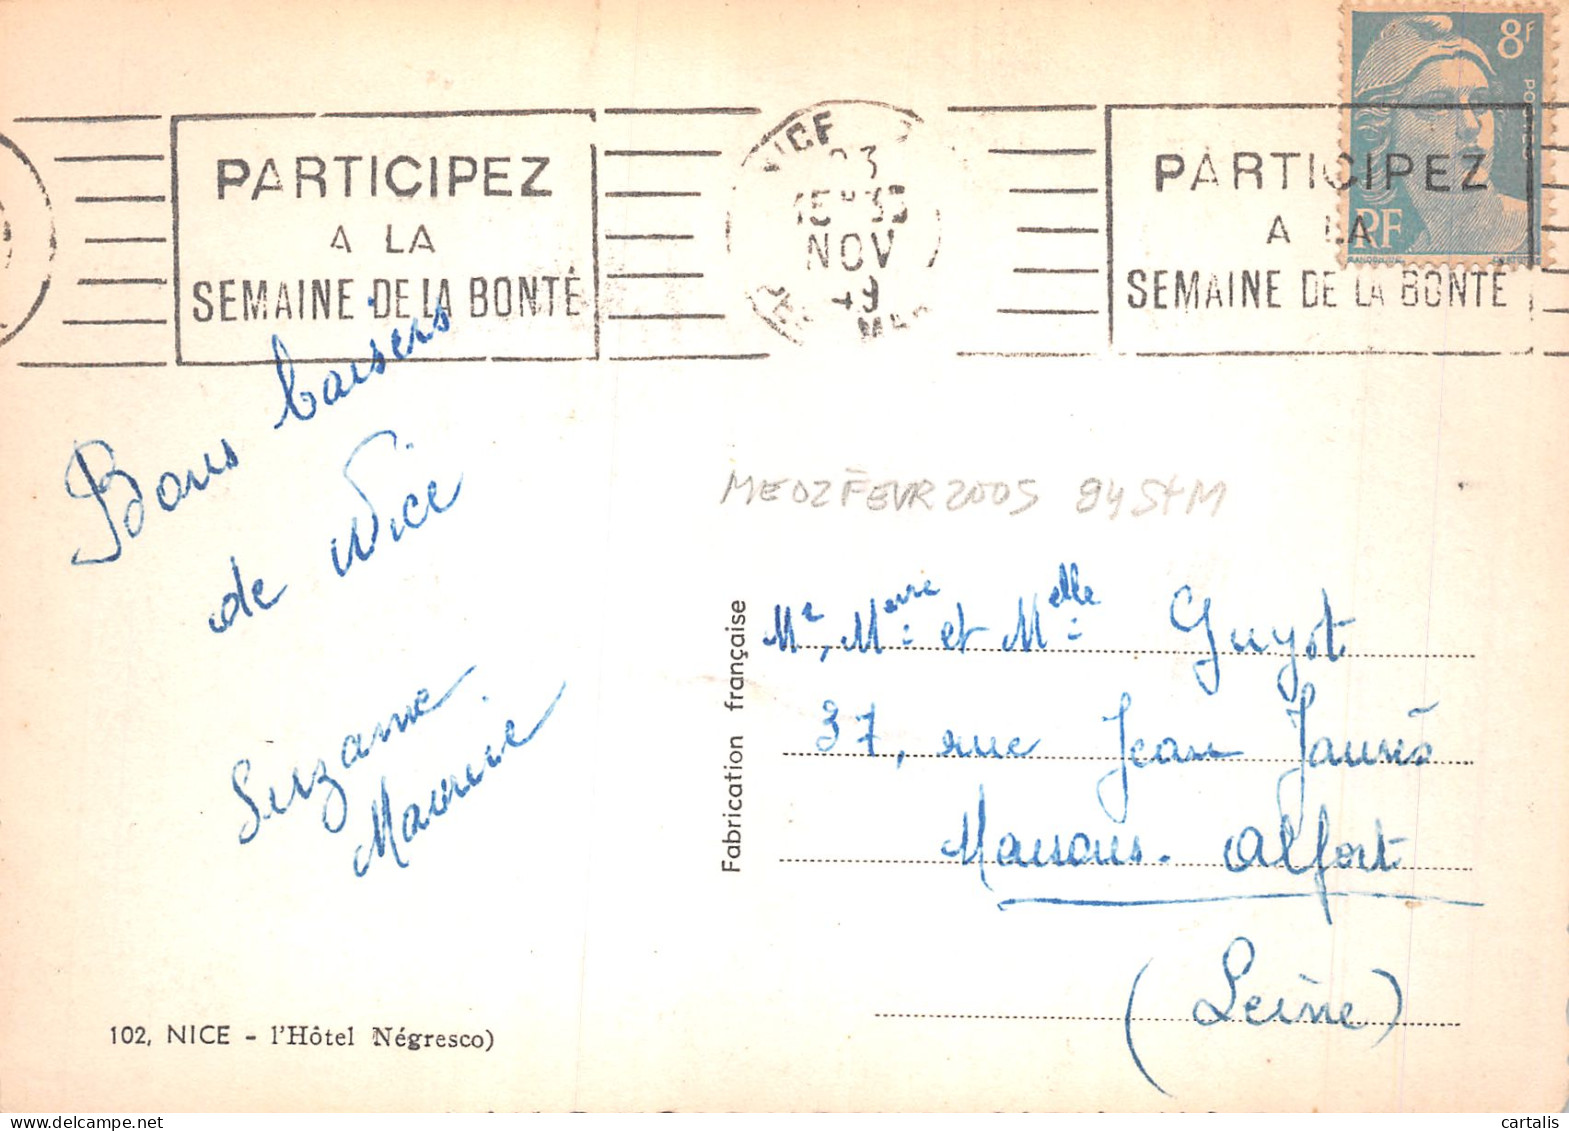 PARTICIPEZ
A LA
SEMAINE DE LA BONTÉ
NICE
23
15H35
NOV
49
PARTICIPEZ
A LA
SEMAINE DE LA BONTÉ
8F
POSTES
RF
Bons baisers
de Nice
Suzanne
Maurice
MEDZ FEVR 2005 94 StM
Fabrication française
Mr, Mme et Melle Guyot
37, rue Jean Jaurès
Maisons-Alfort
(Seine)
102, NICE - l'Hôtel Négresco)
cartalis
www.delcampe.net